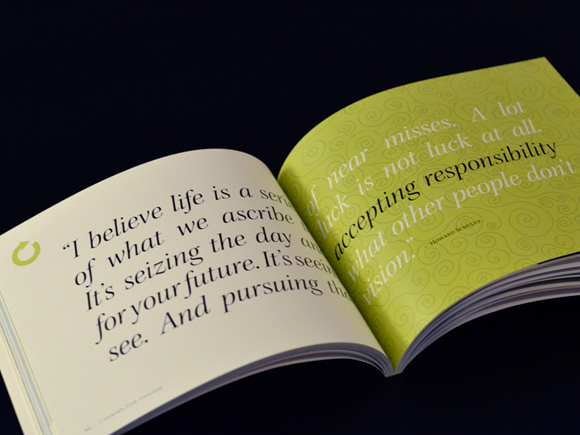 "I believe life is a seri
of what we ascribe
It's seizing the day an
for your future. It's seein
see. And pursuing th
of near misses. A lot
luck is not luck at all.
accepting responsibility
what other people don't
vision."
Howard Schultz